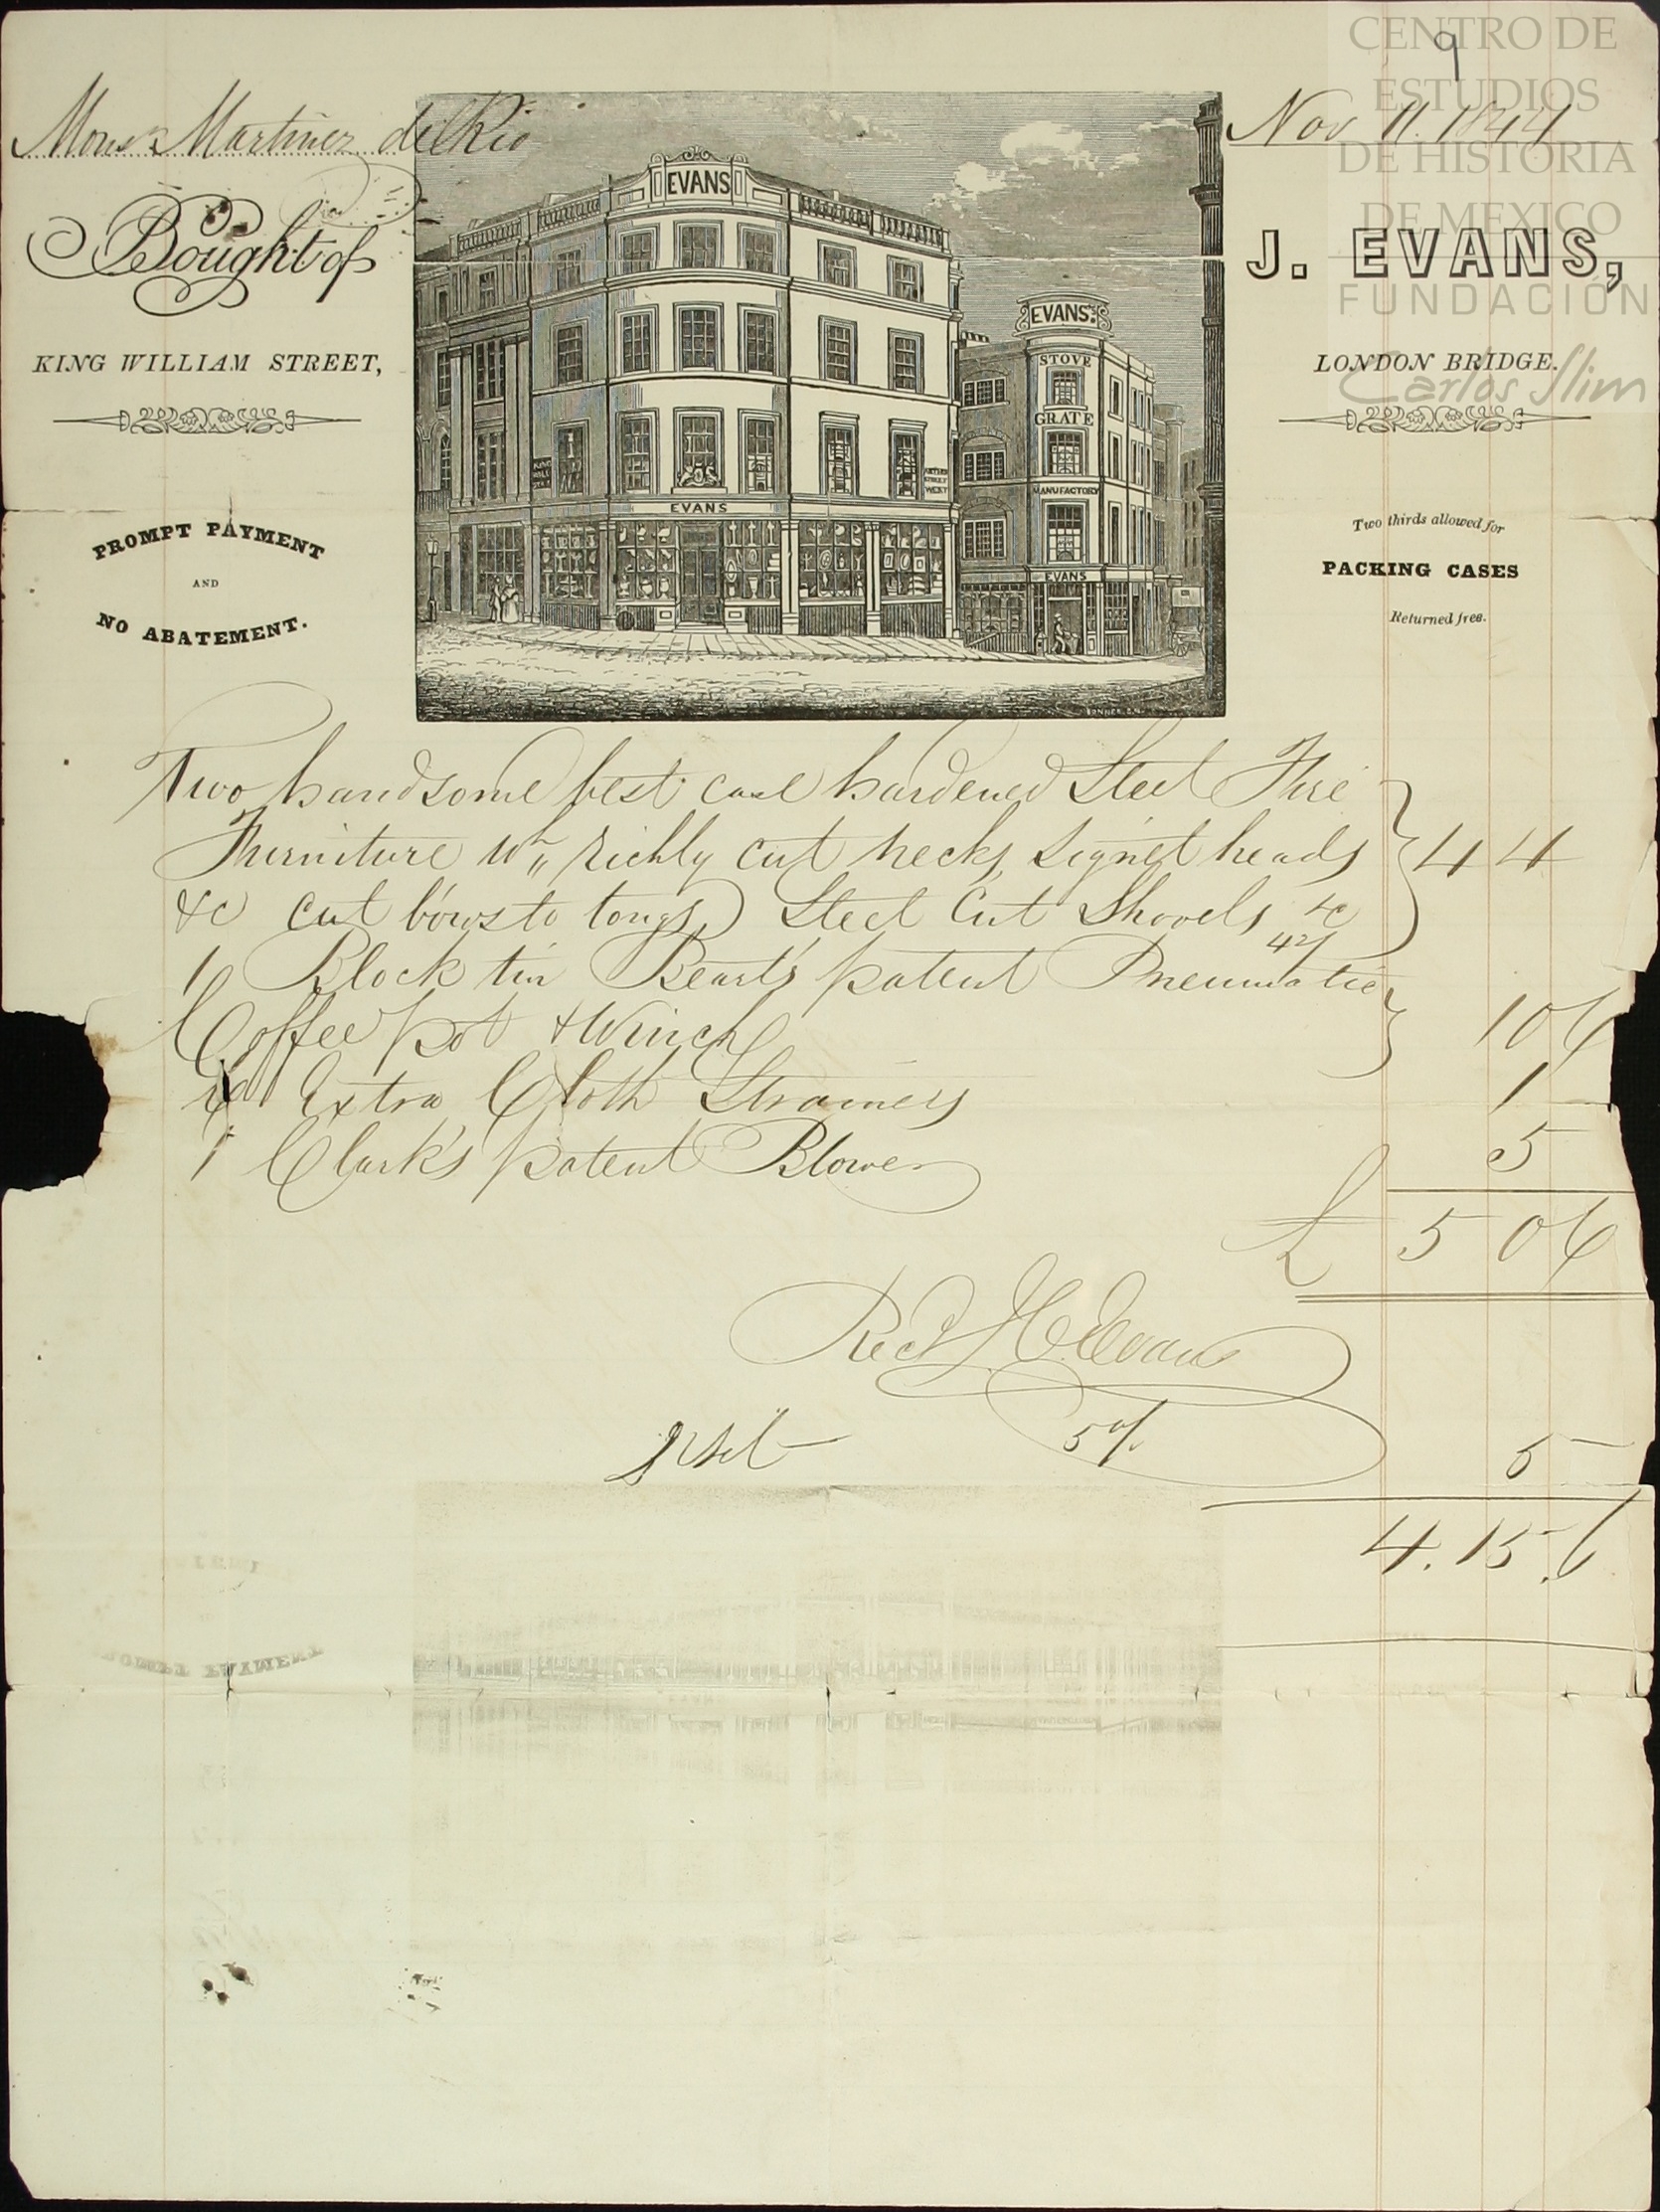 9
CENTRO DE
ESTUDIOS
DE HISTORIA
DE MEXICO
FUNDACIÓN
Carlos Slim
Mons Martinez del Rio
Nov 11. 1844
Bought of
J. EVANS,
KING WILLIAM STREET,
LONDON BRIDGE.
PROMPT PAYMENT
AND
NO ABATEMENT.
Two thirds allowed for
PACKING CASES
Returned free.
EVANS
EVANS'S
STOVE
GRATE
MANUFACTORY
EVANS
EVANS
KING
WILL
ARTHUR
STREET
WEST
Two handsome best case hardened Steel Fire
Furniture Wh richly cut necks, Signet heads 4 4
&c cut bows to tongs Steel Cut Shovels &c
42/
1 Block tin Beart's patent Pneumatic
Coffee pot & Winch 10 6
Extra Cloth Strainers 1
1 Clark's patent Blower 5
£ 5 0 6
Recd J. C. Evans
5% 5
4.15.6